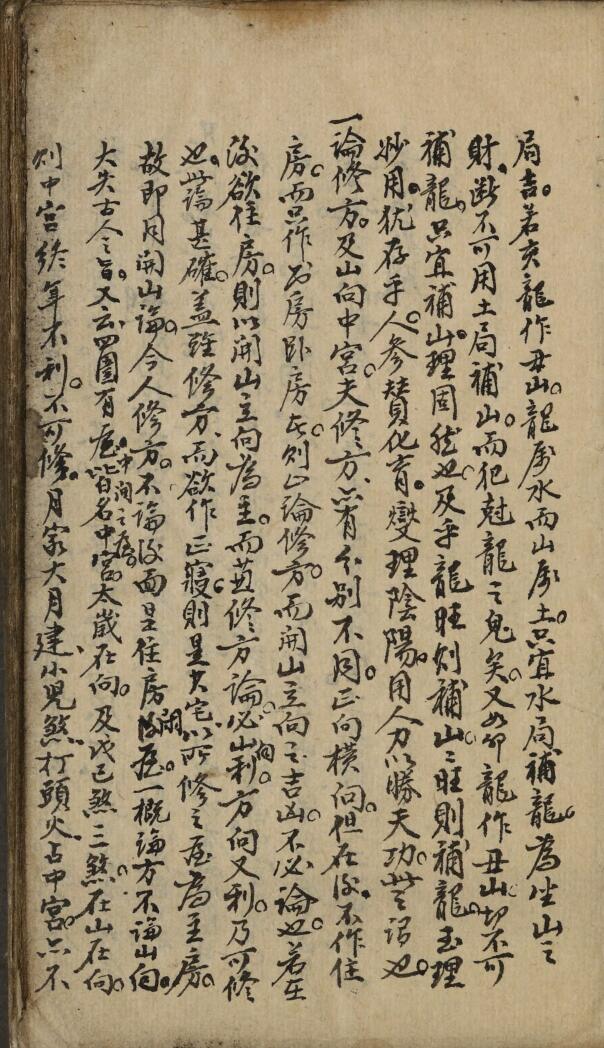 局吉。若亥龍作丑山。龍屬水而山屬土。只宜水局補龍。為坐山之
財。斷不可用土局補山。而犯尅龍之鬼矣。又如卯龍作丑山。切不可
補龍。只宜補山。理固然也。及乎龍旺則補山。山旺則補龍。玄理
妙用。猶存乎人。參贊化育。燮理陰陽。用人力以勝天功。此之謂也。
一論修方。及山向中宮。夫修方亦有分別不同。正向橫向。但在後。不作住
房。而只作書房卧房者。則止論修方。而開山立向之吉凶。不必論也。若在
後欲住房。則以開山立向為主。而兼修方論。必山利。向方向又利。乃可修
也。此論甚確。蓋雖修方。而欲作正寢。則是大宅。以所修之屋為主房。
故即用開山論。今人修方。不論後面是住房閒屋。一概論方不論山向。
大失古人之旨。又云四圍有屋。中間之屋皆名中宮。太歲在向。及戊己煞三煞在山在向。
則中宮終年不利。不可修。月家大月建。小兒煞。打頭火。占中宮。亦不